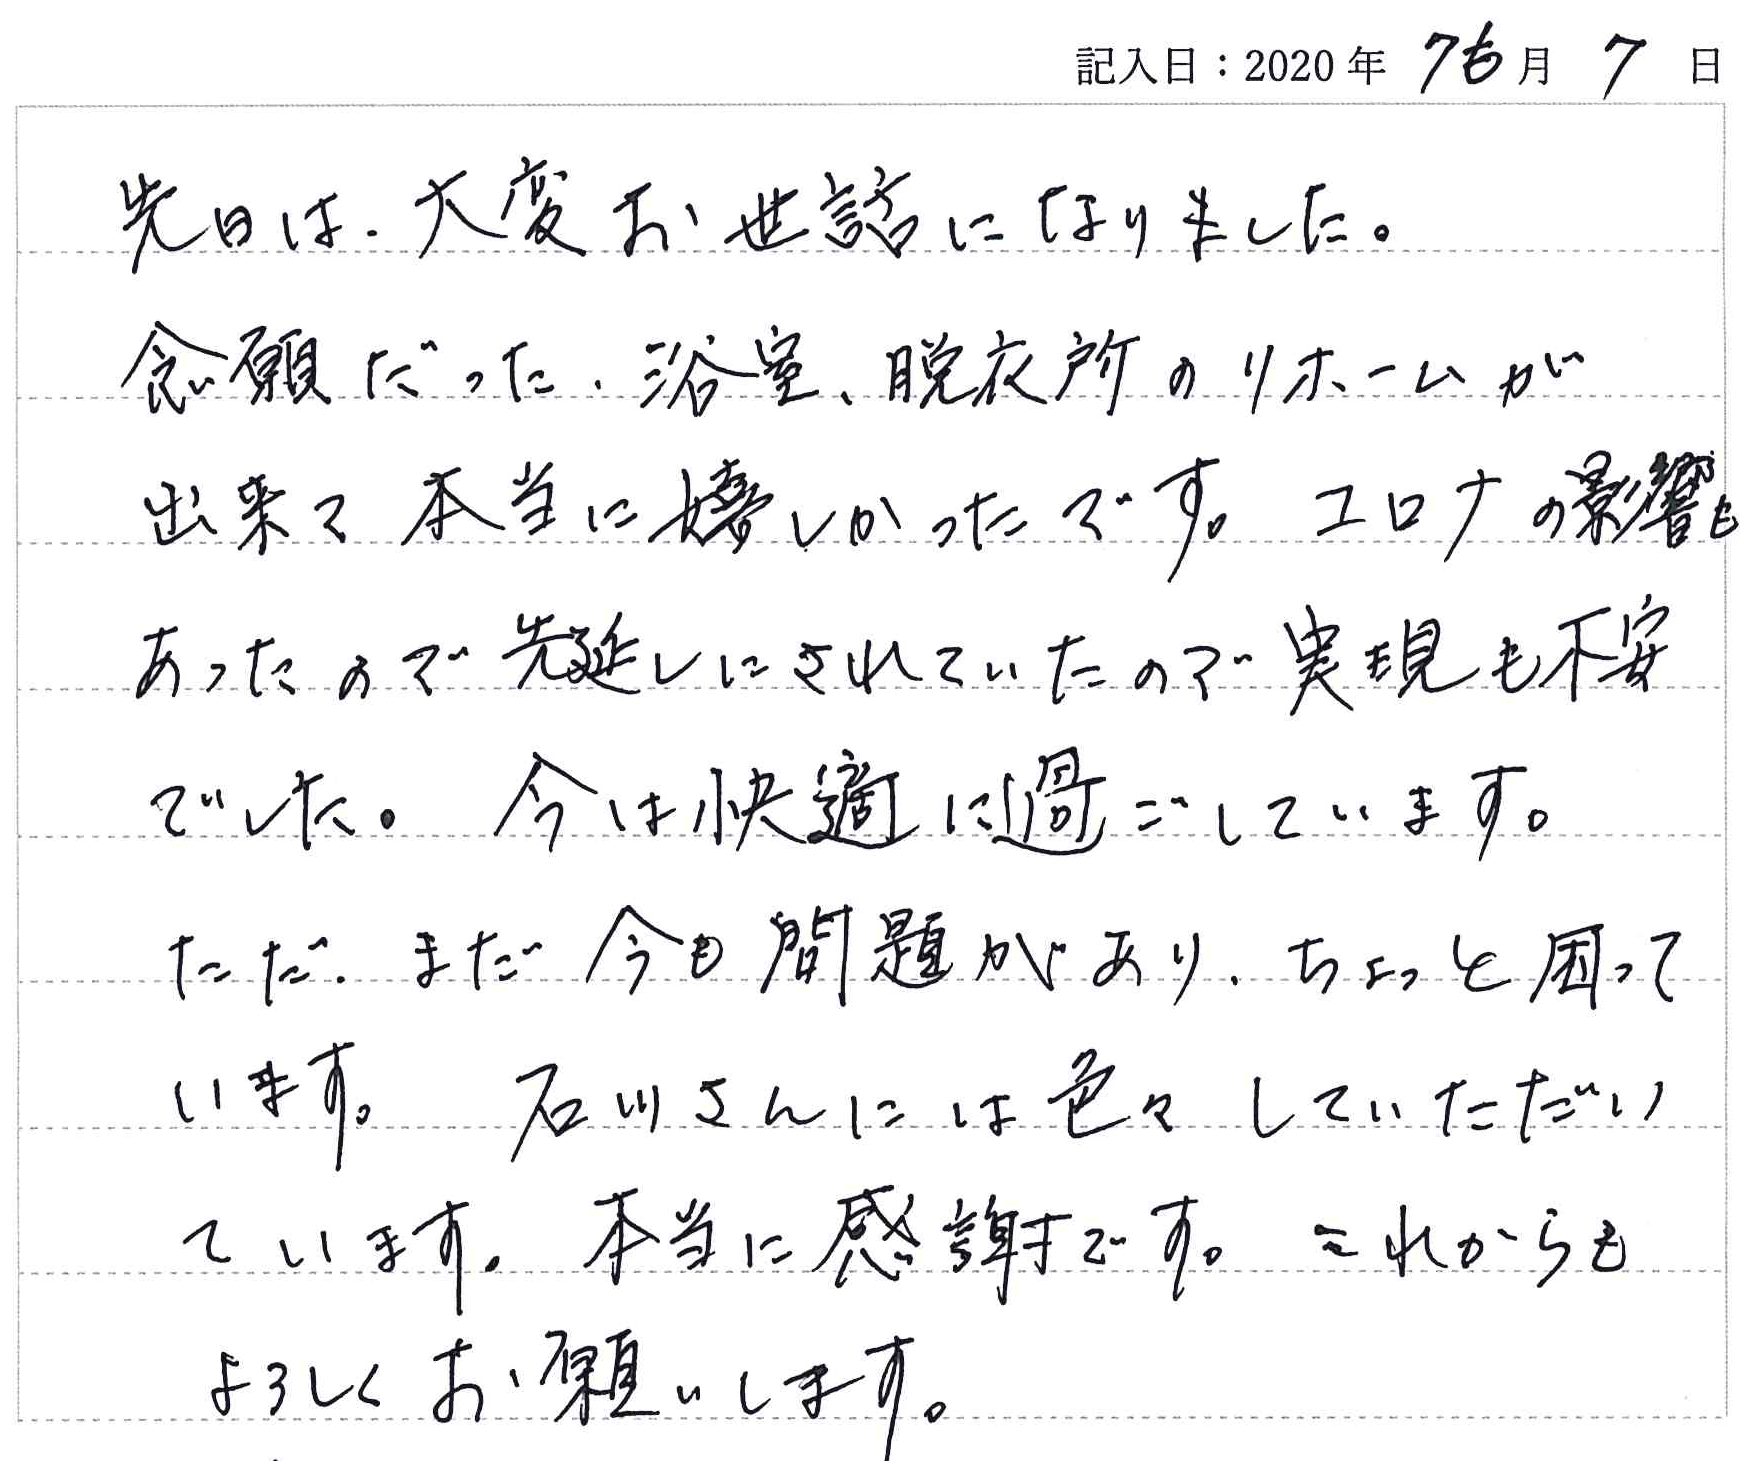 記入日：2020年 7月 7 日
先日は、大変お世話になりました。
念願だった、浴室、脱衣所のリホームが
出来て本当に嬉しかったです。コロナの影響も
あったので先延しにされていたので実現も不安
でした。今は快適に過ごしています。
ただ、まだ今も問題があり、ちょっと困って
います。石川さんには色々していただい
ています。本当に感謝です。これからも
よろしくお願いします。